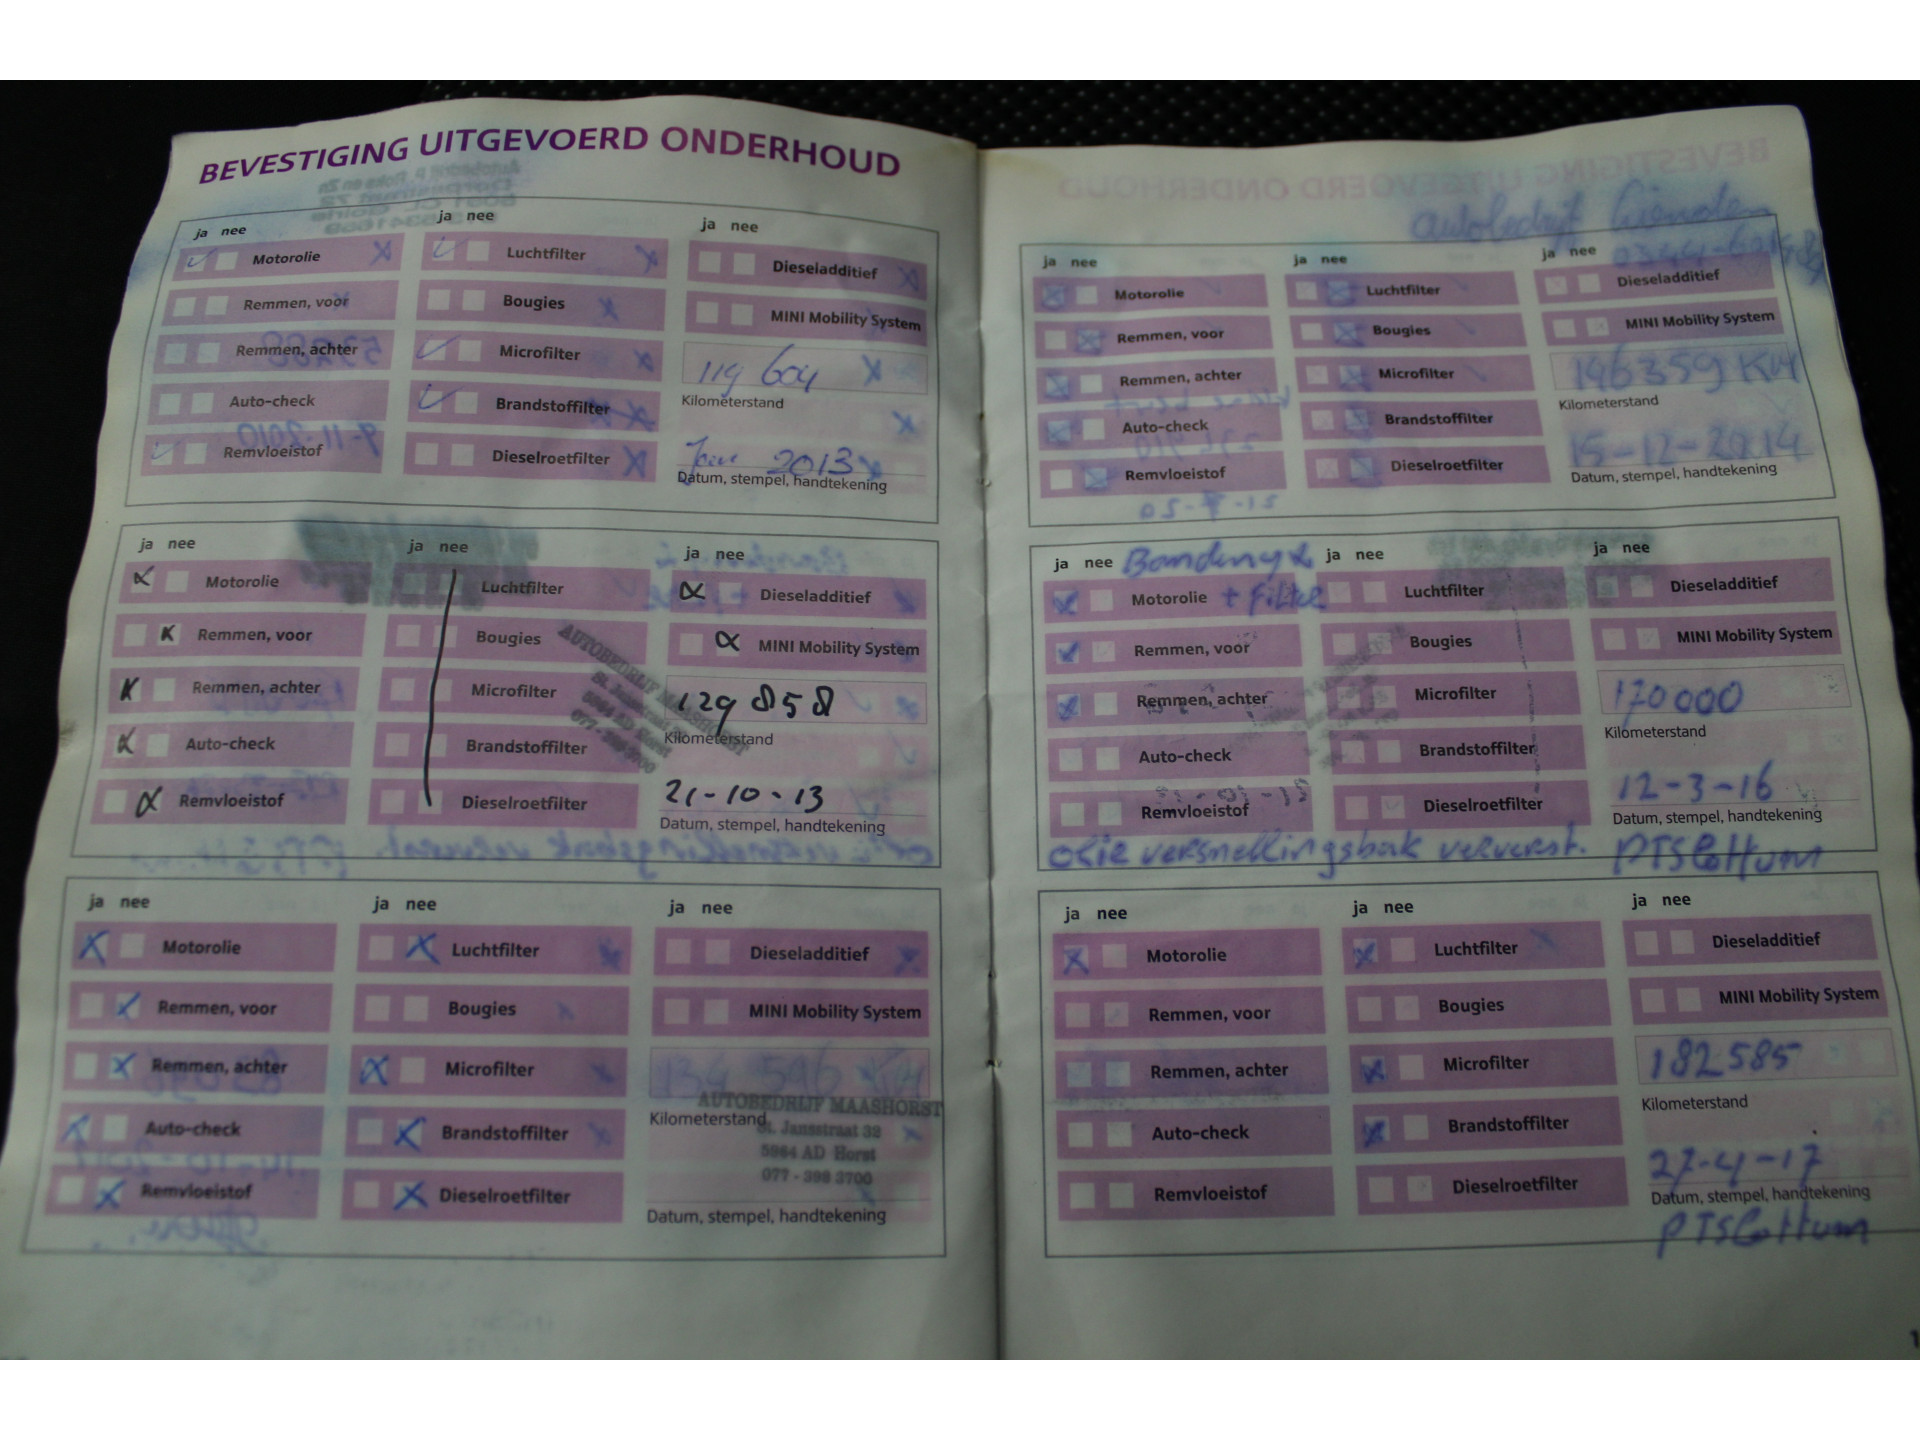 BEVESTIGING UITGEVOERD ONDERHOUD
ja nee
Motorolie
Remmen, voor
Remmen, achter
Auto-check
Remvloeistof
ja nee
Luchtfilter
Bougies
Microfilter
Brandstoffilter
Dieselroetfilter
ja nee
Dieseladditief
MINI Mobility System
119 604
Kilometerstand
2013
Datum, stempel, handtekening
ja nee
Motorolie
Remmen, voor
Remmen, achter
Auto-check
Remvloeistof
ja nee
Luchtfilter
Bougies
Microfilter
Brandstoffilter
Dieselroetfilter
AUTOBEDRIJF MAASHORST
St. Jansstraat 32
5964 AD Horst
077 - 398 3700
ja nee
Dieseladditief
MINI Mobility System
129 858
Kilometerstand
21-10-13
Datum, stempel, handtekening
ja nee
Motorolie
Remmen, voor
Remmen, achter
Auto-check
Remvloeistof
ja nee
Luchtfilter
Bougies
Microfilter
Brandstoffilter
Dieselroetfilter
ja nee
Dieseladditief
MINI Mobility System
134 596 KM
AUTOBEDRIJF MAASHORST
Kilometerstand
St. Jansstraat 32
5964 AD Horst
077 - 398 3700
Datum, stempel, handtekening
autobedrijf
ja nee
Motorolie
Remmen, voor
Remmen, achter
Auto-check
Remvloeistof
ja nee
Luchtfilter
Bougies
Microfilter
Brandstoffilter
Dieselroetfilter
ja nee
Dieseladditief
MINI Mobility System
146359 KM
Kilometerstand
15-12-2014
Datum, stempel, handtekening
ja nee
Motorolie + Filter
Remmen, voor
Remmen, achter
Auto-check
Remvloeistof
ja nee
Luchtfilter
Bougies
Microfilter
Brandstoffilter
Dieselroetfilter
ja nee
Dieseladditief
MINI Mobility System
170000
Kilometerstand
12-3-16
Datum, stempel, handtekening
olie versnellingsbak ververst.
ja nee
Motorolie
Remmen, voor
Remmen, achter
Auto-check
Remvloeistof
ja nee
Luchtfilter
Bougies
Microfilter
Brandstoffilter
Dieselroetfilter
ja nee
Dieseladditief
MINI Mobility System
182585
Kilometerstand
27-4-17
Datum, stempel, handtekening